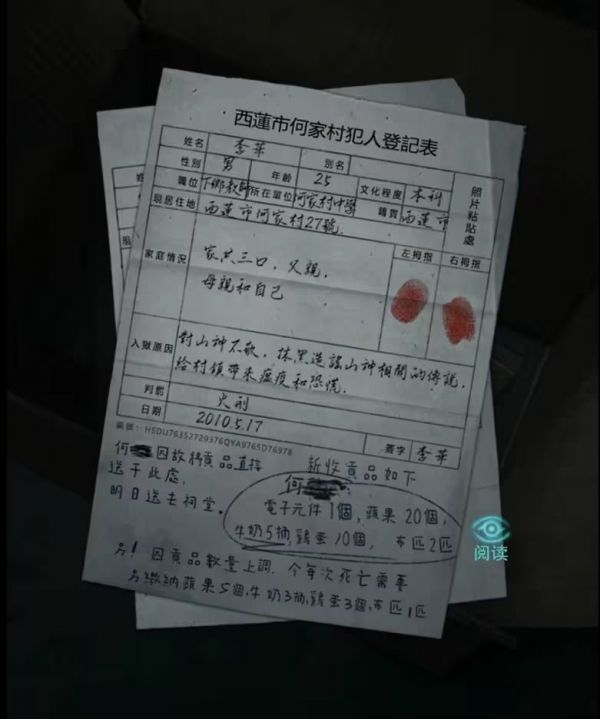 西蓮市何家村犯人登記表
姓名 李華
性別 男 別名
年齡 25
文化程度 本科
職位 下鄉教師 所在單位 何家村中學 籍貫 西蓮市
現居住地 西蓮市何家村27號
照片粘貼處
家庭情況 家共三口，父親，
母親和自己
左拇指 右拇指
入獄原因 對山神不敬，抹黑造謠山神相關的傳說，
給村鎮帶來瘟疫和恐慌。
判罰 火刑
日期 2010.5.17
簽字 李華
編號：HSDU76352729376QYA9765D76978
何 因故將貢品直接
送于此處，
明日送去祠堂。
新收貢品如下
何
電子元件1個，蘋果20個，
牛奶5桶，雞蛋10個，布匹2匹
另！因貢品數量上調，今每次死亡需要
另繳納蘋果5個，牛奶3桶，雞蛋3個，布匹1匹
阅读